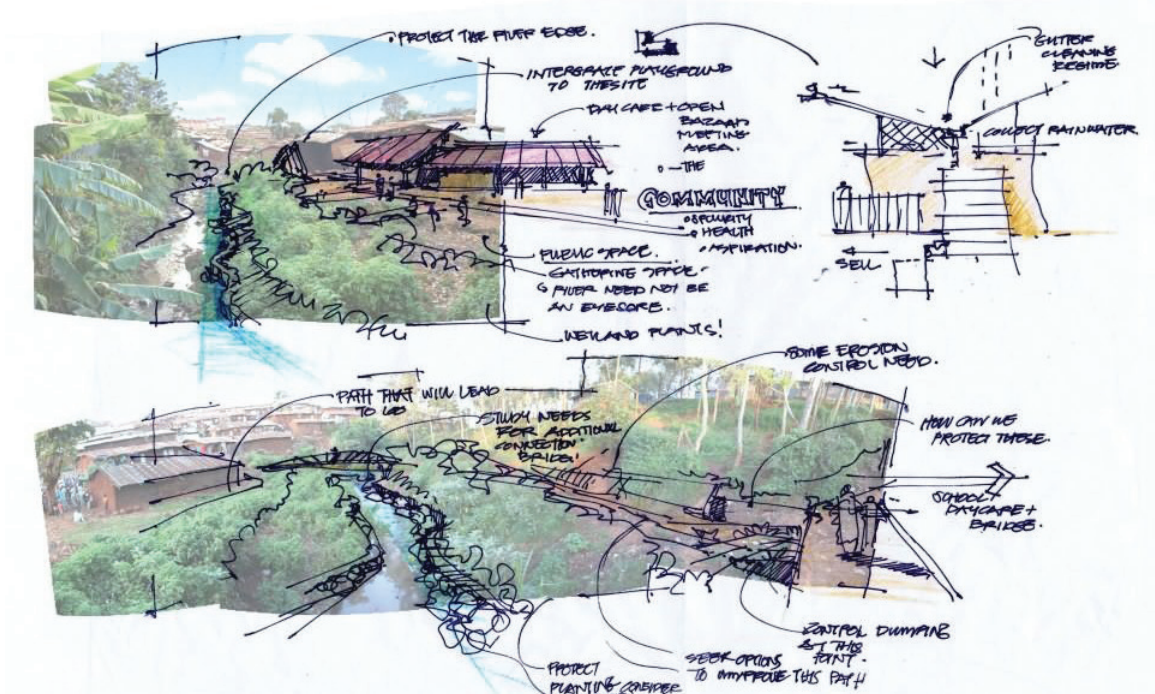 • PROTECT THE RIVER EDGE.
INTERGRATE PLAYGROUND
TO THESITE
DAYCARE + OPEN
BAZAAR
MEETING
AREA.
• — THE
COMMUNITY
• SECURITY
• HEALTH
• ASPIRATION.
PUBLIC SPACE.
GATHERING SPACE.
RIVER NEED NOT BE
AN EYESORE.
WETLAND PLANTS!
GUTTER
CLEANING
REGIME.
COLLECT RAINWATER.
SELL
SOME EROSION
CONTROL NEED.
PATH THAT WILL LEAD
TO
STUDY NEEDS
FOR ADDITIONAL
CONNECTION
BRIDGE!
HOW CAN WE
PROTECT THESE.
SCHOOL +
DAYCARE +
BRIDGE.
CONTROL DUMPING
AT THIS
POINT.
SEEK OPTIONS
TO IMPROVE THIS PATH
PROTECT
PLANTING CONSIDER